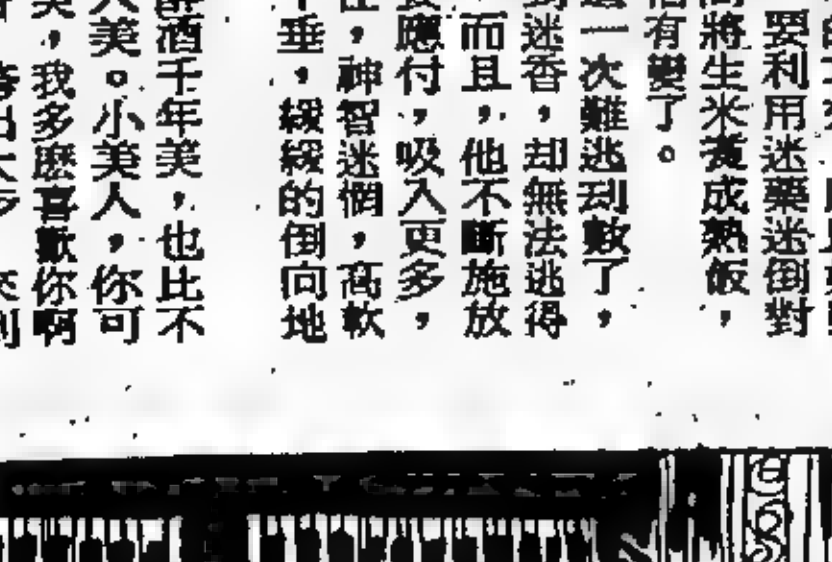 要利用迷藥迷倒對
將生米煮成熟飯，
有變了。
一次難逃劫數了，
迷香，却無法逃得
而且，他不斷施放
應付，吸入更多，
，神智迷惘，高軟
垂，緩緩的倒向地
酒千年美，也比不
美。小美人，你可
，我多麽喜歡你啊